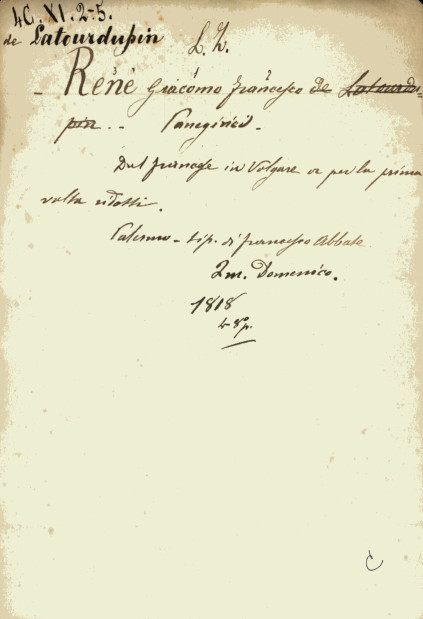 4C. XI. 2-5.
de Latourdupin
L. Z.
- René Giacomo Francesco de Latourdu-
pin. - Panegirici.
Dal francese in Volgare or per la prima
volta ridotti.
Palermo - tip. di Francesco Abbate
Qm. Domenico.
1818
4 8º p.
C